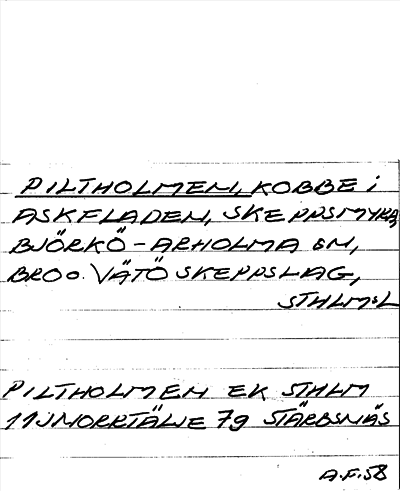 PILTHOLMEN, KOBBE i
ASKFLADEN, SKEPPSMYRA,
BJÖRKÖ-ARHOLMA SN,
BRO o. VÄTÖ SKEPPSLAG,
STHLMS L
PILTHOLMEN EK STHLM
11J NORRTÄLJE 7g STÄRBSNÄS
A.F. 58